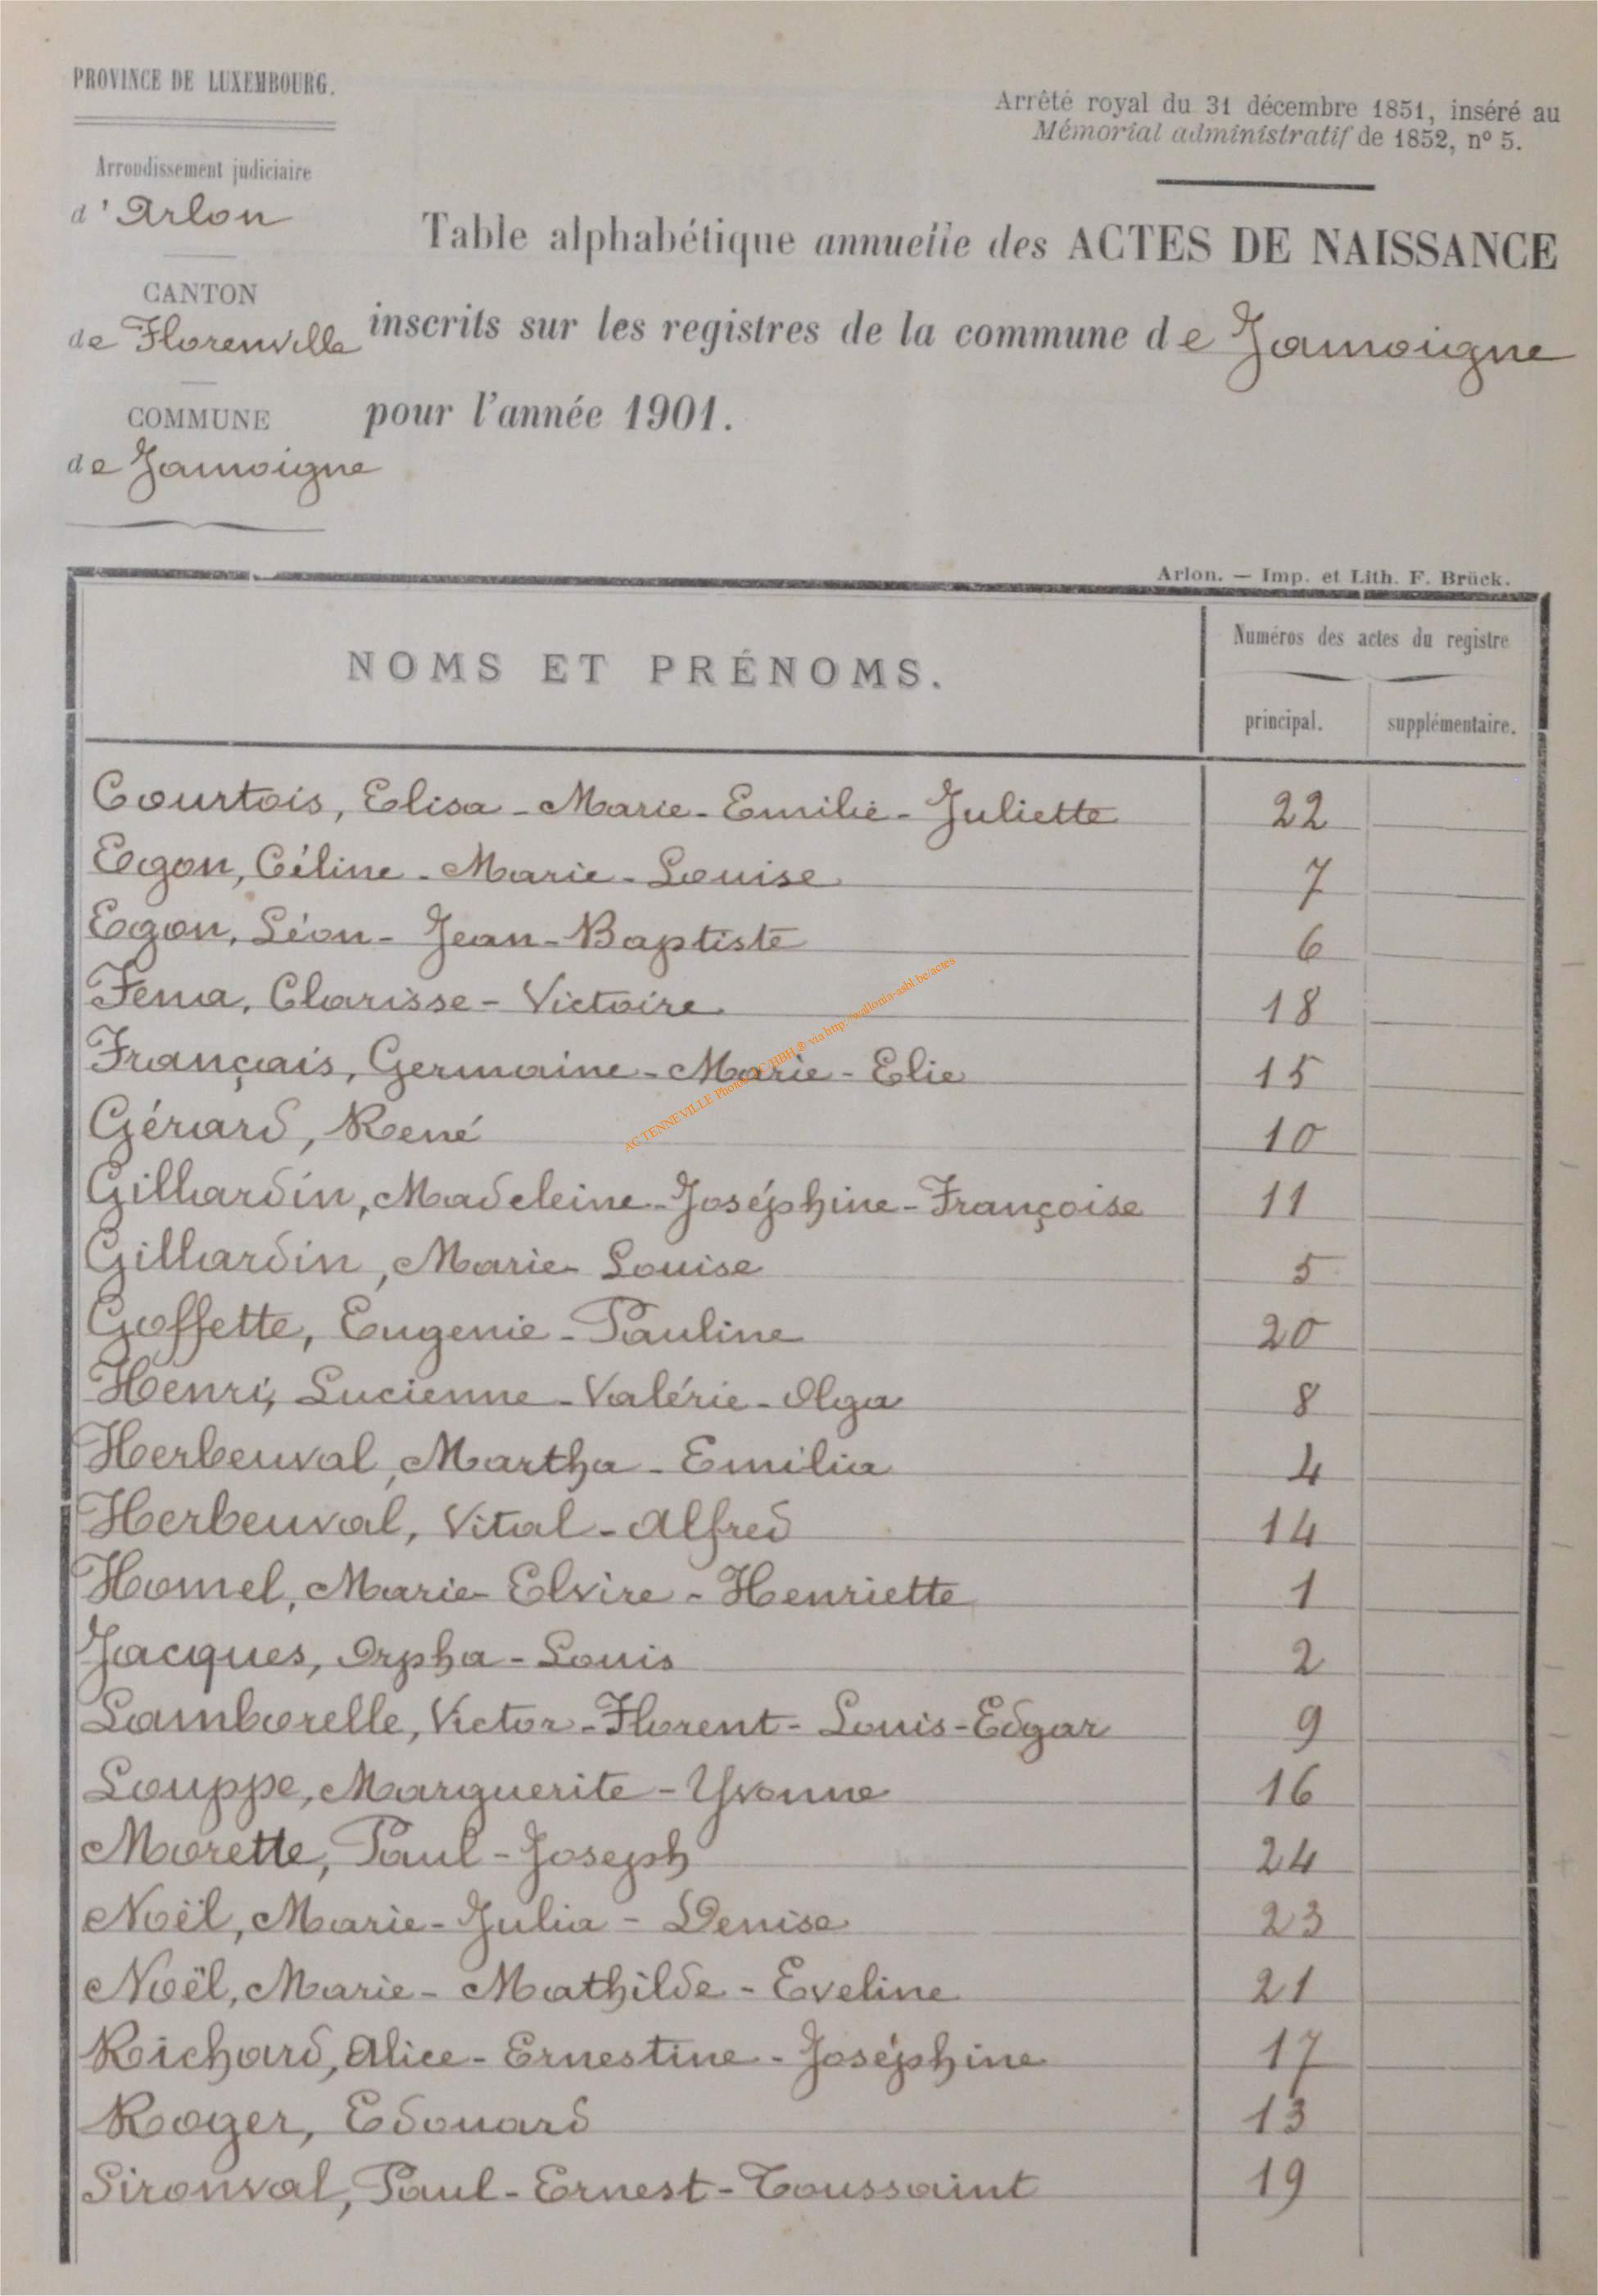 PROVINCE DE LUXEMBOURG.
Arrêté royal du 31 décembre 1851, inséré au
Mémorial administratif de 1852, nº 5.
Arrondissement judiciaire
d'Arlon
Table alphabétique annuelle des ACTES DE NAISSANCE
CANTON
de Florenville
inscrits sur les registres de la commune de Jamoigne
COMMUNE
pour l'année 1901.
de Jamoigne
Arlon. — Imp. et Lith. F. Brück.
NOMS ET PRÉNOMS.
Numéros des actes du registre
principal. supplémentaire.
Courtois, Elisa - Marie - Emilie - Juliette 22
Egon, Céline - Marie - Louise 7
Egon, Léon - Jean - Baptiste 6
Fema, Clarisse - Victoire 18
Français, Germaine - Marie - Elie 15
Gérard, René 10
Gillardin, Madeleine - Joséphine - Françoise 11
Gillardin, Marie - Louise 5
Goffette, Eugenie - Pauline 20
Henri, Lucienne - Valérie - Olga 8
Herbeuval, Martha - Emilia 4
Herbeuval, Vital - Alfred 14
Homel, Marie - Elvire - Henriette 1
Jacques, Orpha - Louis 2
Lamborelle, Victor - Florent - Louis - Edgar 9
Louppe, Marguerite - Yvonne 16
Morette, Paul - Joseph 24
Noël, Marie - Julia - Denise 23
Noël, Marie - Mathilde - Eveline 21
Richard, Alice - Ernestine - Joséphine 17
Roger, Edouard 13
Sironval, Paul - Ernest - Toussaint 19
ACTENNEVILLE HBH ® via http://wallonia-asbl.be/actes